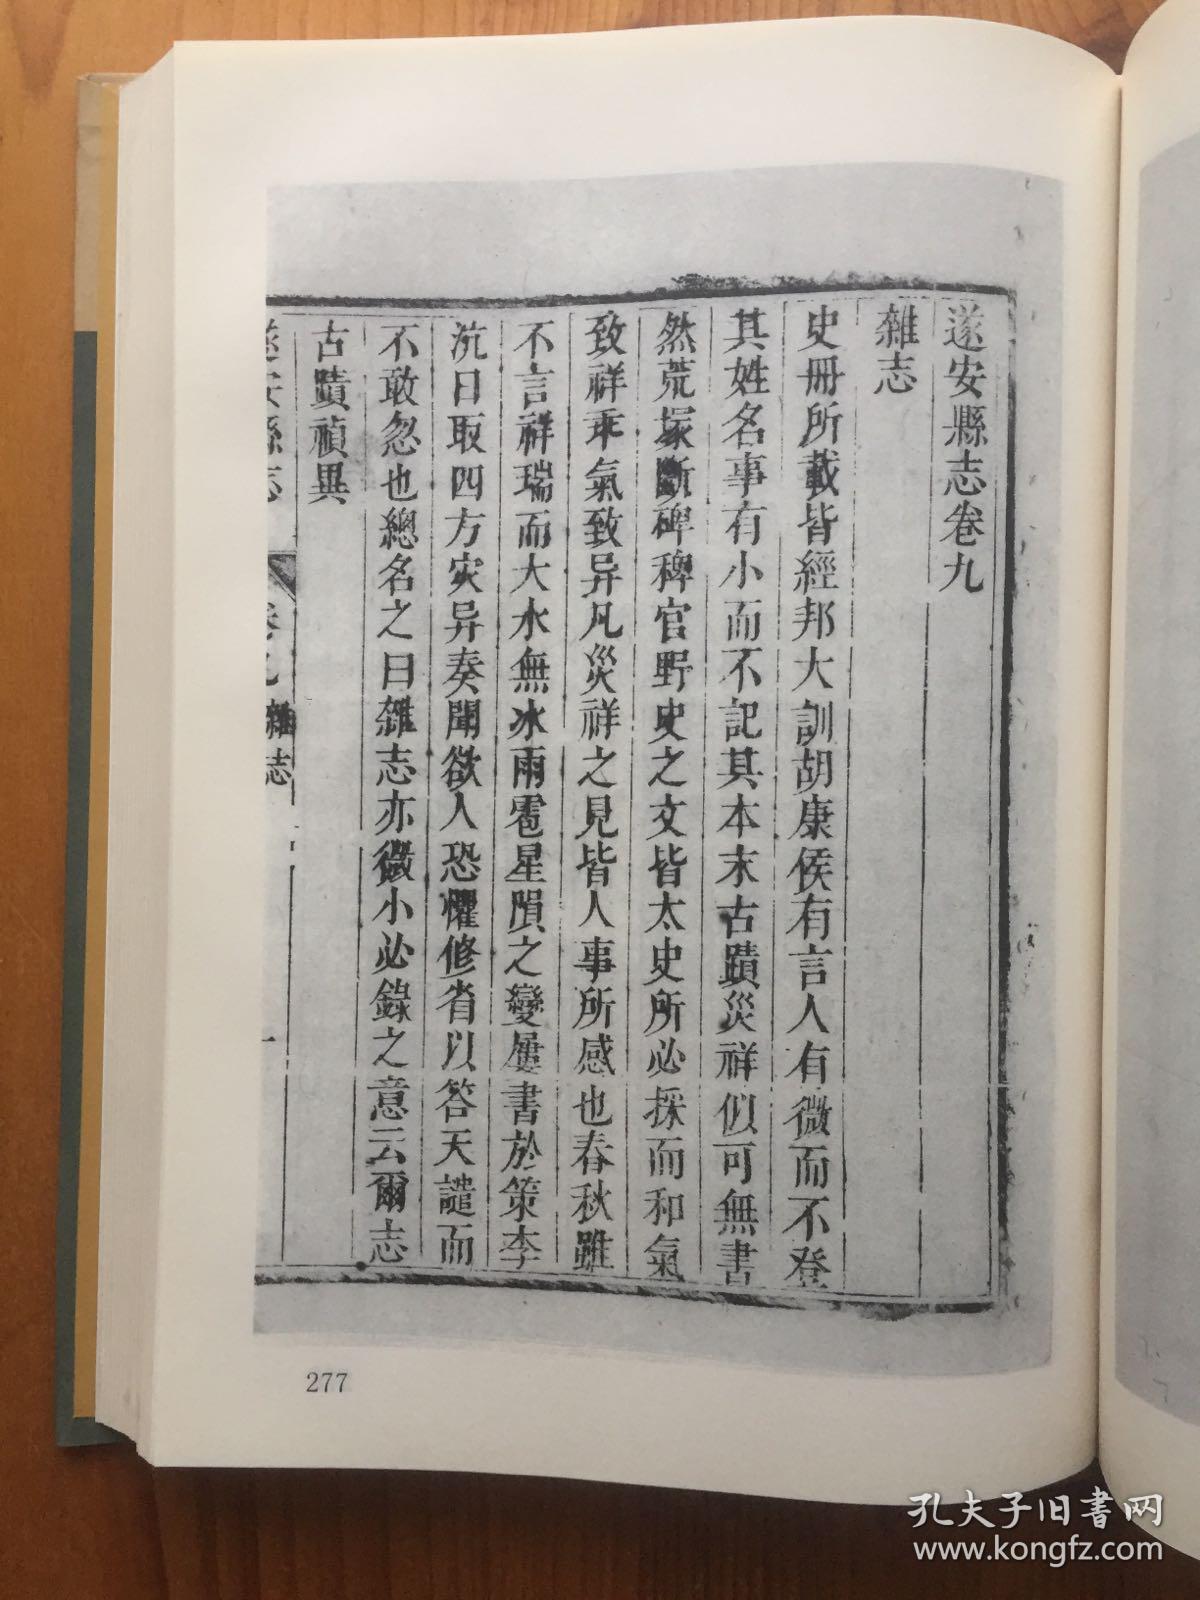 遂安縣志卷九
雜志
史冊所載皆經邦大訓胡康侯有言人有微而不登
其姓名事有小而不記其本末古蹟災祥似可無書
然荒塚斷碑稗官野史之文皆太史所必採而和氣
致祥乖氣致异凡災祥之見皆人事所感也春秋雖
不言祥瑞而大水無冰雨雹星隕之變屢書於策李
沆日取四方灾异奏聞欲人恐懼修省以答天譴而
不敢忽也總名之曰雜志亦微小必錄之意云爾志
古蹟禎異
遂安縣志 卷九 雜志 一
277
孔夫子旧书网
www.kongfz.com